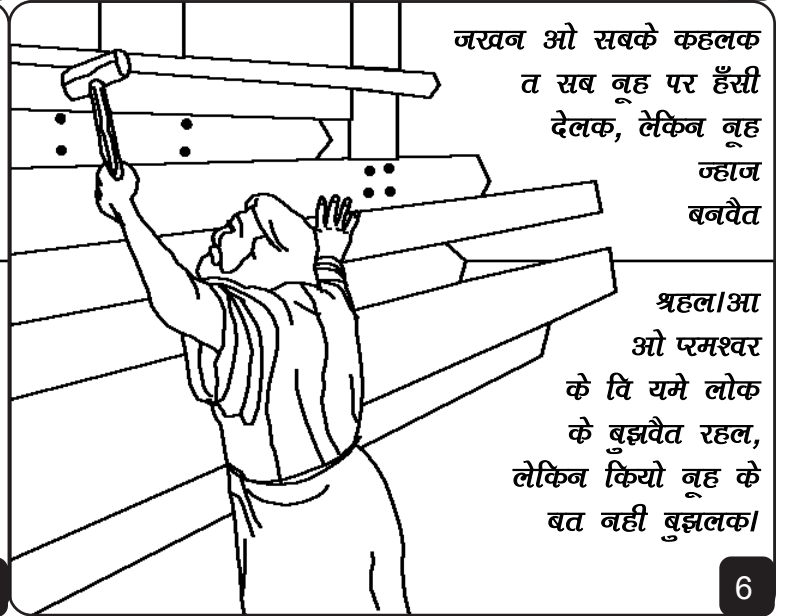 जखन ओ सबके कहलक
त सब नूह पर हँसी
देलक, लेकिन नूह
ज्हाज
बनवैत
श्रहल।आ
ओ प्रमश्वर
के वि यमे लोक
के बुझवैत रहल,
लेकिन कियो नूह के
बत नही बुझलक।
6